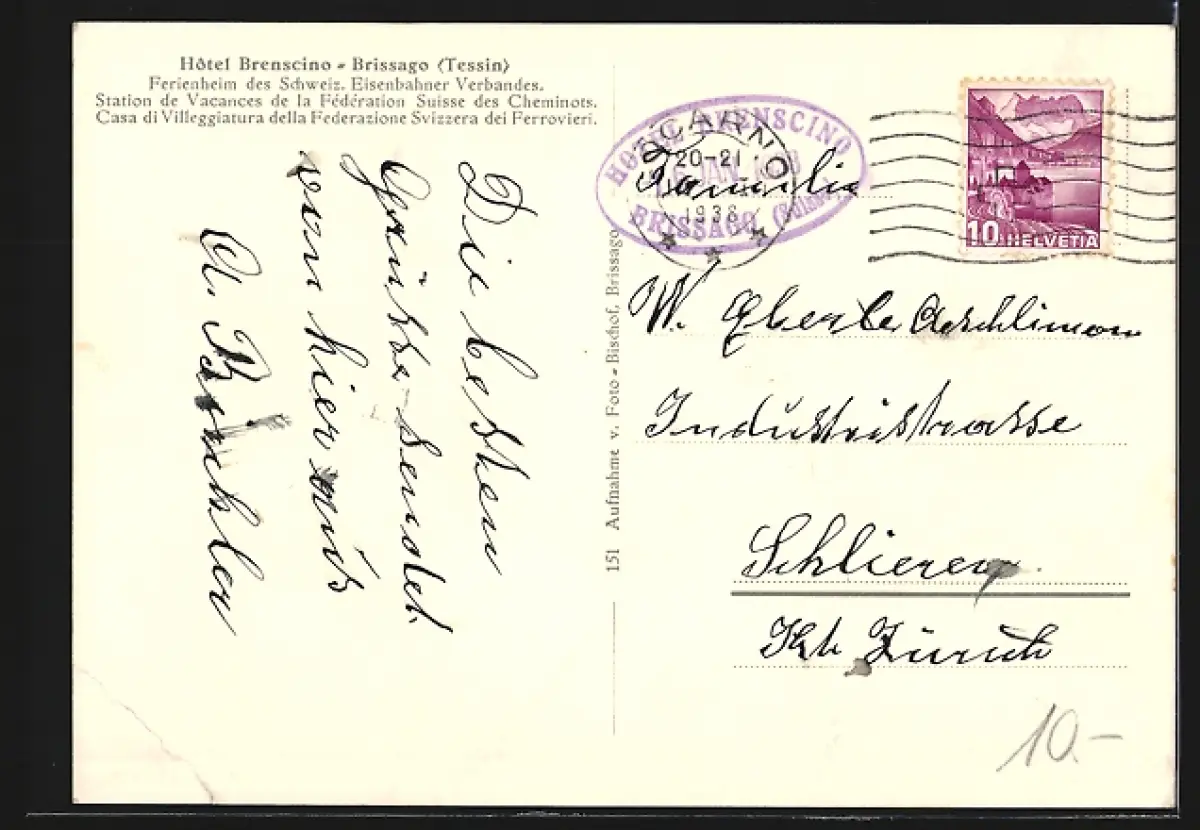 Hôtel Brenscino - Brissago (Tessin)
Ferienheim des Schweiz. Eisenbahner Verbandes.
Station de Vacances de la Fédération Suisse des Cheminots.
Casa di Villeggiatura della Federazione Svizzera dei Ferrovieri.
Die besten
Grüsse sendet
von hier aus
A.
151 Aufnahme v. Foto - Bischof, Brissago
HOTEL BRENSCINO
BRISSAGO
LOCARNO
20-21
1938
10 HELVETIA
Familie
W. Eberle Aeschlimann
Industriestrasse
Schlieren.
Kt. Zürich
10.-